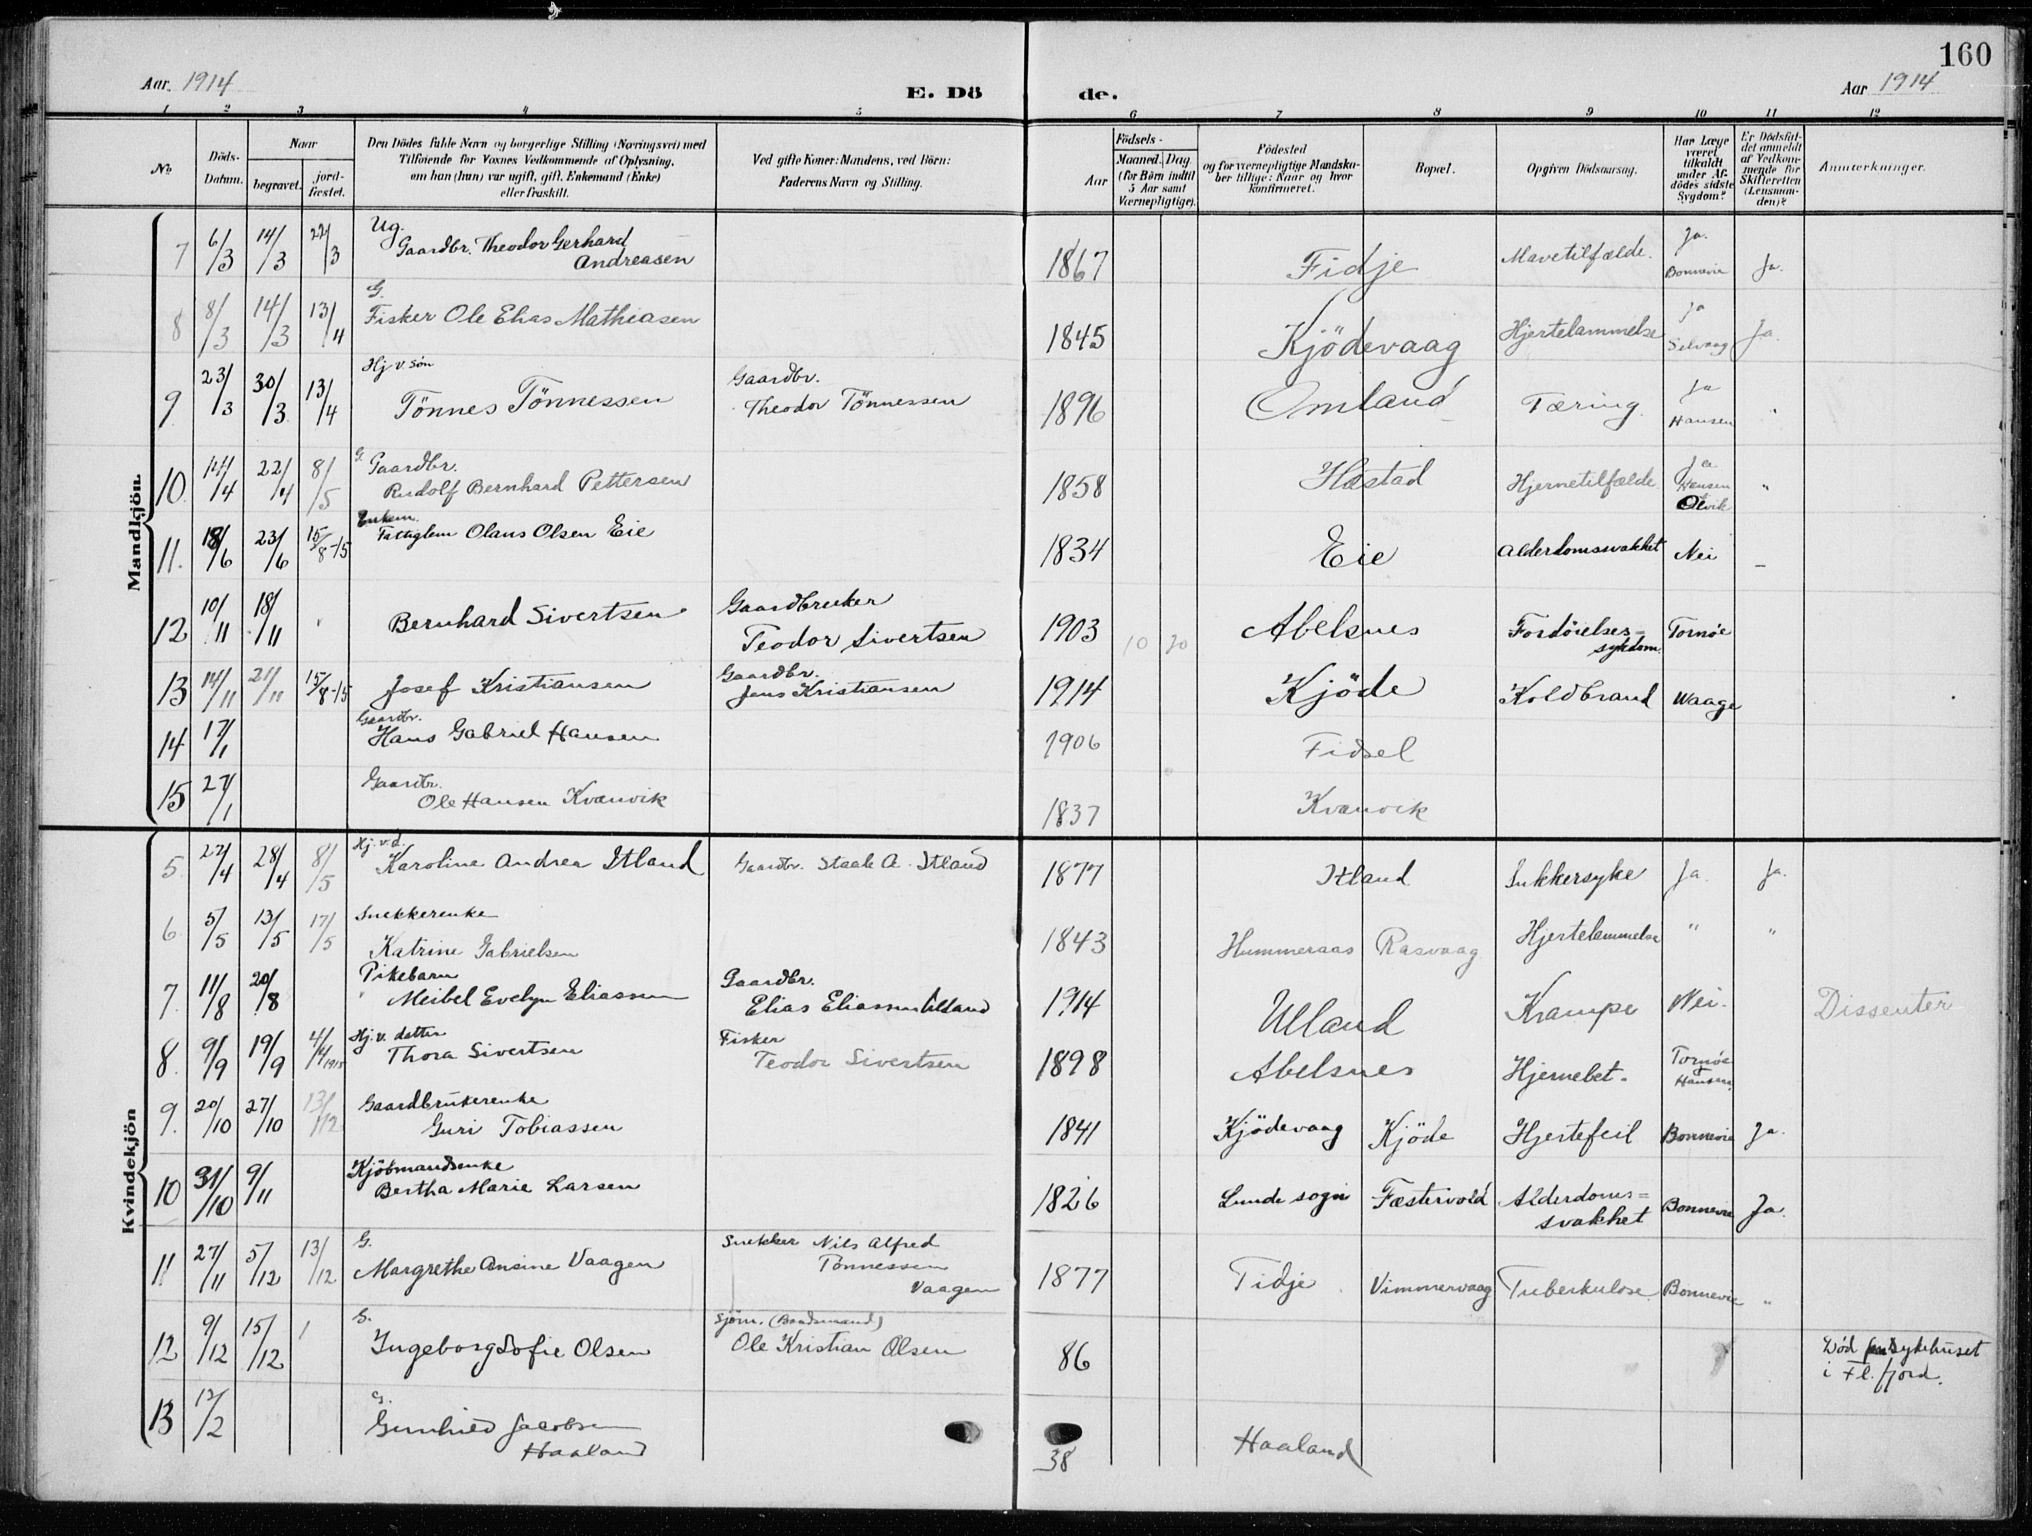 160
Aar. 1914 E. Dö de. Aar 1914
1 2 3 4 5 6 7 8 9 10 11 12
No. Döds-Datum. Naar begravet. jord-fæstet. Den Dödes fulde Navn og borgerlige Stilling (Næringsvei) med Tilföiende for Voxnes Vedkommende af Oplysning, om han (hun) var ugift, gift, Enkemand (Enke) eller fraskilt. Ved gifte Koner: Mandens, ved Börn: Faderens Navn og Stilling. Födsels- Aar Maaned. Dag (for Börn indtil 5 Aar samt Værnepligtige). Födested og for værnepligtige Mandskaber tillige: Naar og hvor konfirmeret. Bopæl. Opgiven Dödsaarsag. Har Læge været tilkaldt under Afdödes sidste Sygdom? Er Dödsfaldet anmeldt af Vedkommende for Skifteretten (Lensmanden)? Anmærkninger.
Mandkjön.
7 6/3 14/3 22/3 Ug. Gaardbr. Theodor Gerhard Andreasen 1867 Fidje Mavetilfælde. Ja. Bonnevie Ja.
8 8/3 14/3 13/4 G. Fisker Ole Elias Mathiasen 1845 Kjödevaag Hjertelammelse Ja Selvaag Ja.
9. 23/3 30/3 13/4 Hj. v. søn Tönnes Tönnessen Gaardbr. Theodor Tönnessen 1896 Omland Tæring. Ja Hansen "
10. 14/4 22/4 8/5 G. Gaardbr. Rudolf Bernhard Pettersen 1858 Hestad Hjernetilfælde Ja Hansen "
11. 18/6 23/6 15/8-15 Enkem. Fattiglem Olaus Olsen Eie 1834 Eie Alderdomssvakhet Nei –
12 10/11 18/11 Bernhard Sivertsen Gaardbruker Teodor Sivertsen 1903 10 20 Abelsnes Fordøielses-sykdom. Tornøe
13 14/11 21/11 15/8-15 Josef Kristiansen Gaardbr. Jens Kristiansen 1914 Kjöde Koldbrand Waage
14 17/1 Gaardbr. Hans Gabriel Hansen 1906 Fidsel
15 27/1 Gaardbr. Ole Hansen Kvanvik 1837 Kvanvik
Kvindekjön
5. 22/4 28/4 8/5 Hj. v. d. Karoline Andrea Itland Gaardbr. Staale A. Itland 1877 Itland Sukkersyke Ja. Ja.
6. 5/5 13/5 17/5 Snekkerenke Katrine Gabrielsen 1843 Hummeraas Rasvaag Hjertelammelse " "
7. 11/8 20/8 Pikebarn Meibel Evelyn Eliassen Gaardbr. Elias Eliassen Ulland 1914 Ulland Krampe Nei. Dissenter
8. 9/9 19/9 4/4 1915 Hj. v. datter Thora Sivertsen Fisker Teodor Sivertsen 1898 Abelsnes Hjernebet. Tornøe Hansen
9. 20/10 27/10 13/12 Gaardbrukerenke Guri Tobiassen 1841 Kjödevaag Kjöde Hjertefeil Bonnevie Ja.
10 31/10 9/11 Kjöbmandsenke Bertha Marie Larsen 1826 Lunde sogn Fæstervold Alderdoms=svakhet Bonnevie Ja.
11 27/11 5/12 13/12 G. Margrethe Ansine Vaagen Snekker Nils Alfred Tönnessen Vaagen 1877 Fidje Vimmervaag Tuberkulose. Bonnevie "
12 9/12 15/12 1 G. Ingeborg Sofie Olsen Sjöm. (Baadsmand) Ole Kristian Olsen 86 Död sykehuset i Fl. fjord.
13 12/2 G. Gunhild Jacobsen Haaland 38 Haaland